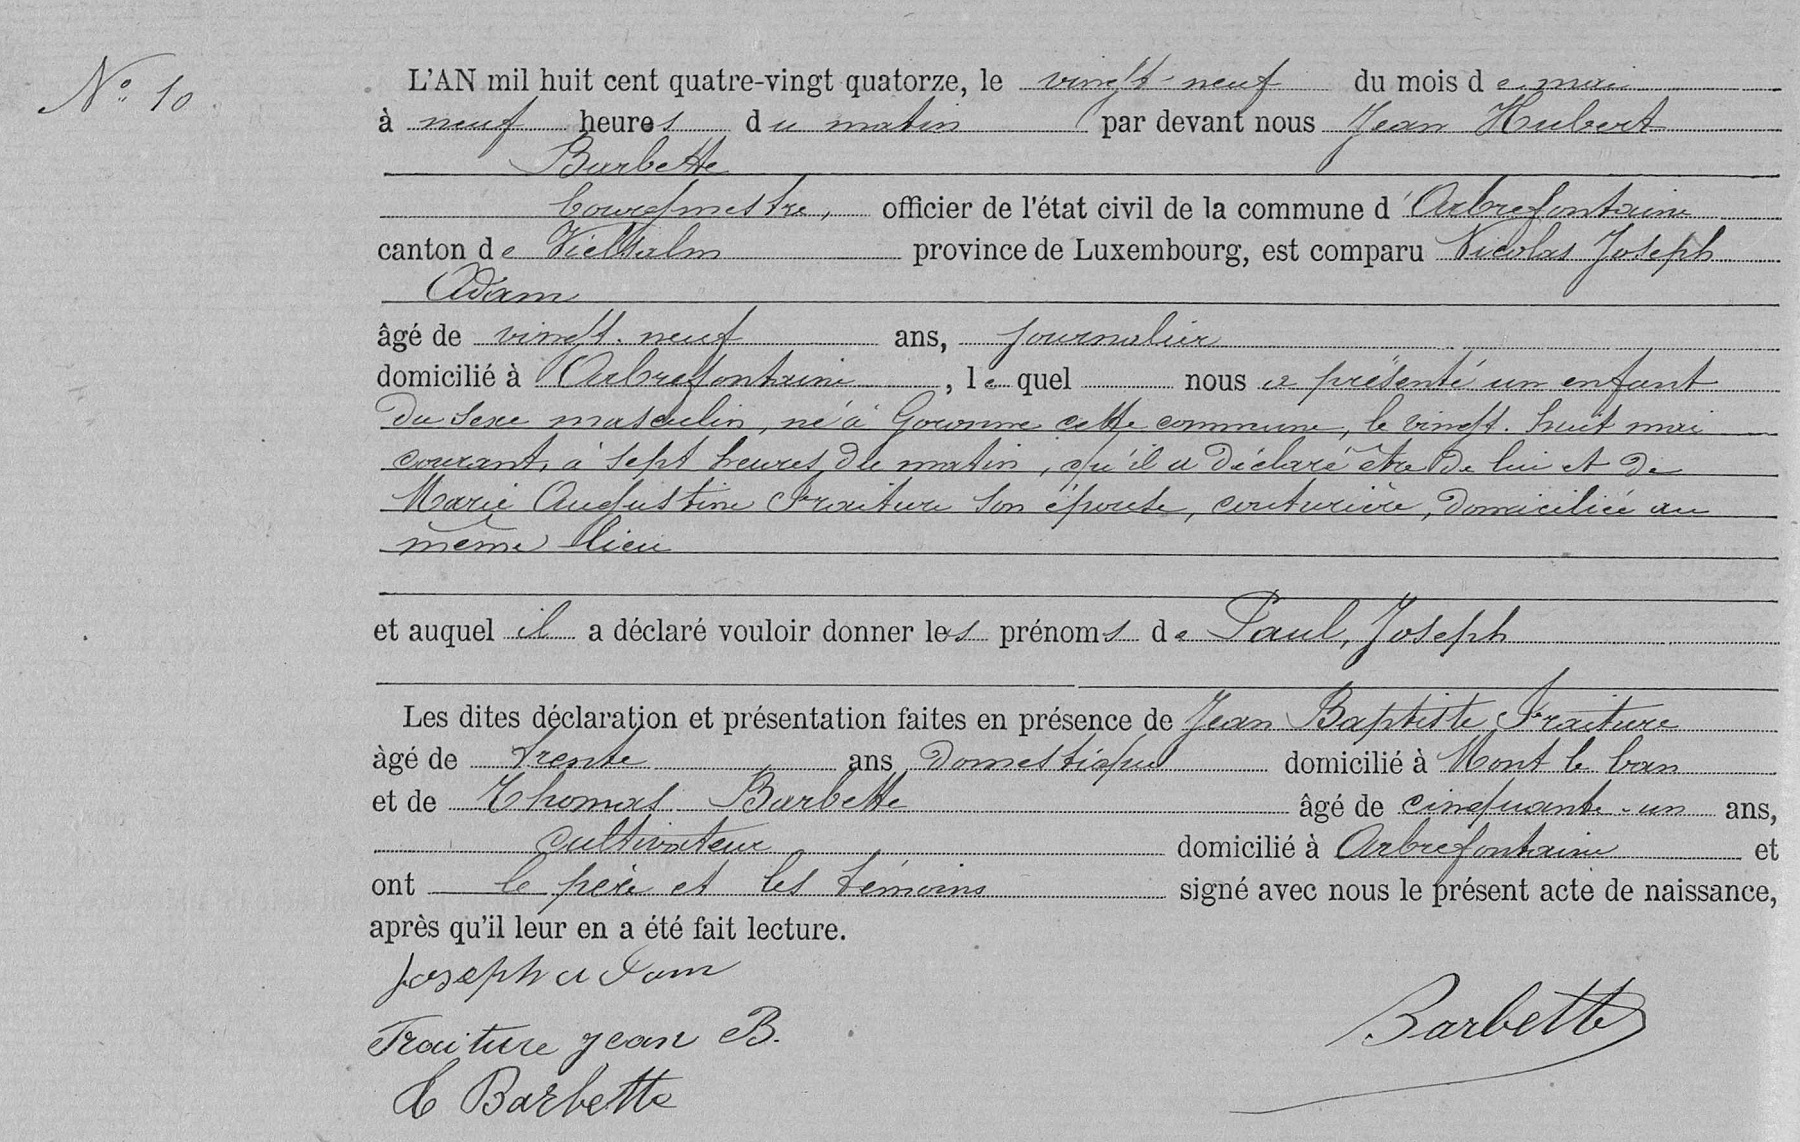 N° 10
L'AN mil huit cent quatre-vingt quatorze, le vingt-neuf du mois de mai
à neuf heures du matin par devant nous Jean Hubert
Barbette
bourgmestre, officier de l'état civil de la commune d'Arbrefontaine
canton de Vielsalm province de Luxembourg, est comparu Nicolas Joseph
Adam
âgé de vingt-neuf ans, journalier
domicilié à Arbrefontaine, le quel nous a présenté un enfant
du sexe masculin, né à Goronne cette commune, le vingt-huit mai
courant, à sept heures du matin, qu'il a déclaré être de lui et de
Marie Augustine Fraiture son épouse, couturière, domiciliée au
même lieu
et auquel il a déclaré vouloir donner les prénoms de Paul, Joseph
Les dites déclaration et présentation faites en présence de Jean Baptiste Fraiture
âgé de trente ans domestique domicilié à Mont le ban
et de Thomas Barbette âgé de cinquante-un ans,
cultivateur domicilié à Arbrefontaine et
ont le père et les témoins signé avec nous le présent acte de naissance,
après qu'il leur en a été fait lecture.
Joseph Adam
Fraiture jean B.
Barbette
T Barbette